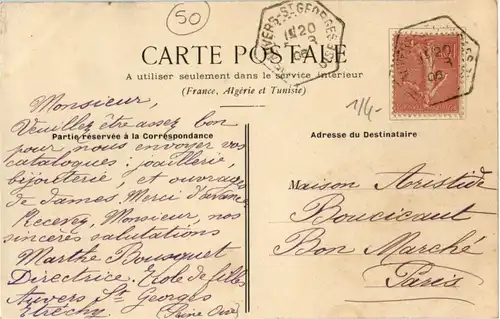 50
AUVERS-ST-GEORGES
20
3
06
CARTE POSTALE
A utiliser seulement dans le service intérieur
(France, Algérie et Tunisie)
1/4-
Partie réservée à la Correspondance
Adresse du Destinataire
Monsieur,
Veuillez être assez bon
pour nous envoyer vos
catalogues : joaillerie,
bijouterie, et ouvrages
de dames. Merci d'avance
Recevez, Monsieur, nos
sincères salutations
Marthe Bousquet
Directrice. École de filles
Auvers St Georges
Etréchy (Seine Oise)
Maison Aristide
Boucicaut
Bon Marché
Paris